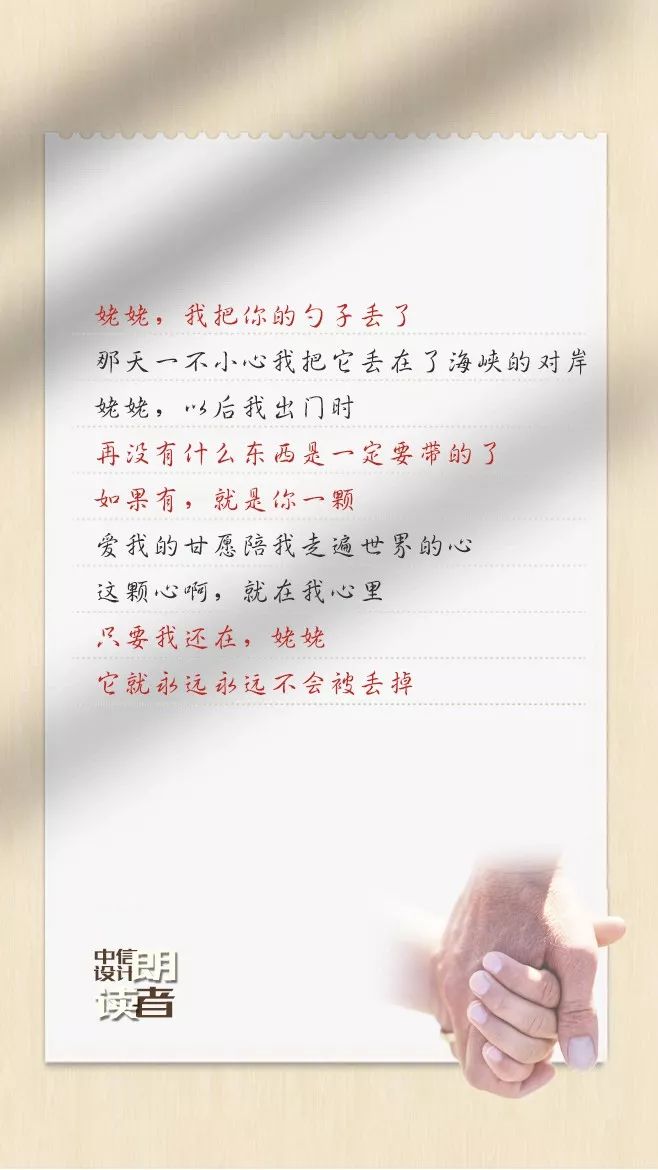 姥姥，我把你的勺子丢了
那天一不小心我把它丢在了海峡的对岸
姥姥，以后我出门时
再没有什么东西是一定要带的了
如果有，就是你一颗
爱我的甘愿陪我走遍世界的心
这颗心啊，就在我心里
只要我还在，姥姥
它就永远永远不会被丢掉
中信
设计朗
读者